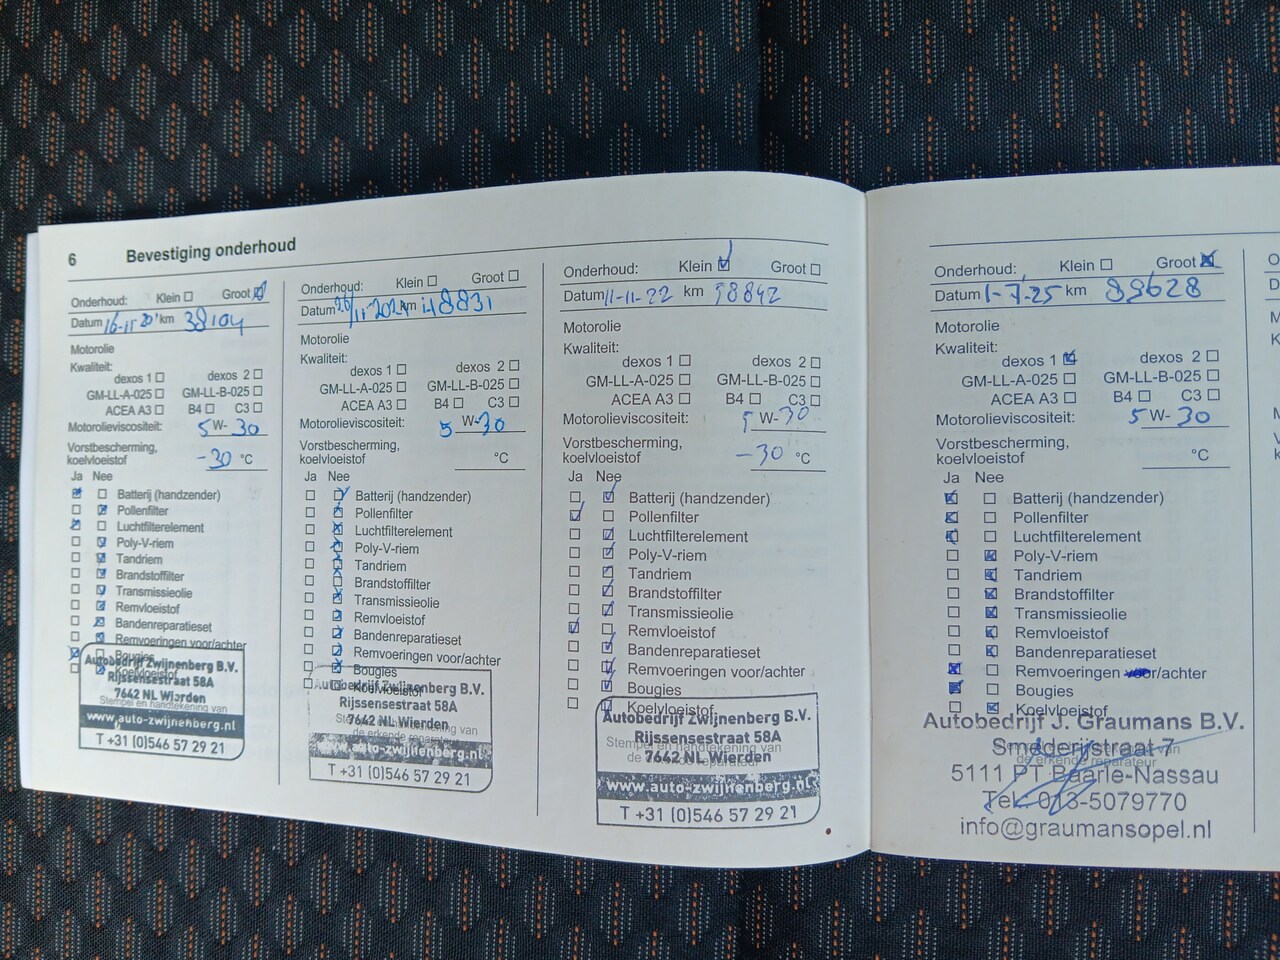 6 Bevestiging onderhoud
Onderhoud: Klein Groot
Datum 16-11-20 km 38104
Motorolie
Kwaliteit:
dexos 1 dexos 2
GM-LL-A-025 GM-LL-B-025
ACEA A3 B4 C3
Motorolieviscositeit: 5 W- 30
Vorstbescherming,
koelvloeistof -30 °C
Ja Nee
Batterij (handzender)
Pollenfilter
Luchtfilterelement
Poly-V-riem
Tandriem
Brandstoffilter
Transmissieolie
Remvloeistof
Bandenreparatieset
Remvoeringen voor/achter
Bougies
Koelvloeistof
Autobedrijf Zwijnenberg B.V.
Rijssensestraat 58A
7642 NL Wierden
Stempel en handtekening van
www.auto-zwijnenberg.nl
T +31 (0)546 57 29 21
Onderhoud: Klein Groot
Datum km 48831
Motorolie
Kwaliteit:
dexos 1 dexos 2
GM-LL-A-025 GM-LL-B-025
ACEA A3 B4 C3
Motorolieviscositeit: 5 W-30
Vorstbescherming,
koelvloeistof °C
Ja Nee
Batterij (handzender)
Pollenfilter
Luchtfilterelement
Poly-V-riem
Tandriem
Brandstoffilter
Transmissieolie
Remvloeistof
Bandenreparatieset
Remvoeringen voor/achter
Bougies
Koelvloeistof
Autobedrijf Zwijnenberg B.V.
Rijssensestraat 58A
7642 NL Wierden
de erkende reparateur
www.auto-zwijnenberg.nl
T +31 (0)546 57 29 21
Onderhoud: Klein Groot
Datum 11-11-22 km 58842
Motorolie
Kwaliteit:
dexos 1 dexos 2
GM-LL-A-025 GM-LL-B-025
ACEA A3 B4 C3
Motorolieviscositeit: 5 W-30
Vorstbescherming,
koelvloeistof -30 °C
Ja Nee
Batterij (handzender)
Pollenfilter
Luchtfilterelement
Poly-V-riem
Tandriem
Brandstoffilter
Transmissieolie
Remvloeistof
Bandenreparatieset
Remvoeringen voor/achter
Bougies
Koelvloeistof
Autobedrijf Zwijnenberg B.V.
Rijssensestraat 58A
Stempel en handtekening van
7642 NL Wierden
de erkende reparateur
www.auto-zwijnenberg.nl
T +31 (0)546 57 29 21
Onderhoud: Klein Groot
Datum 1-7-25 km 89628
Motorolie
Kwaliteit:
dexos 1 dexos 2
GM-LL-A-025 GM-LL-B-025
ACEA A3 B4 C3
Motorolieviscositeit: 5 W-30
Vorstbescherming,
koelvloeistof °C
Ja Nee
Batterij (handzender)
Pollenfilter
Luchtfilterelement
Poly-V-riem
Tandriem
Brandstoffilter
Transmissieolie
Remvloeistof
Bandenreparatieset
Remvoeringen voor/achter
Bougies
Koelvloeistof
Autobedrijf J. Graumans B.V.
Smederijstraat 7
de erkende reparateur
5111 PT Baarle-Nassau
Tel. 013-5079770
info@graumansopel.nl